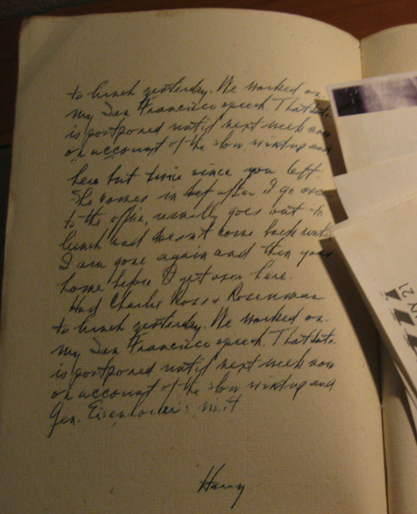 to lunch yesterday. We worked on
my San Francisco speech. That date
is postponed until next week now
on account of the slow windup and
her but twice since you left.
She comes in just after I go over
to the office, usually goes out to
lunch and doesn't come back until
I am gone again and then goes
home before I get over here.
Had Charlie Ross & Rosenman
to lunch yesterday. We worked on
my San Francisco speech. That date
is postponed until next week now
on account of the slow windup and
Gen. Eisenhower's visit
Harry